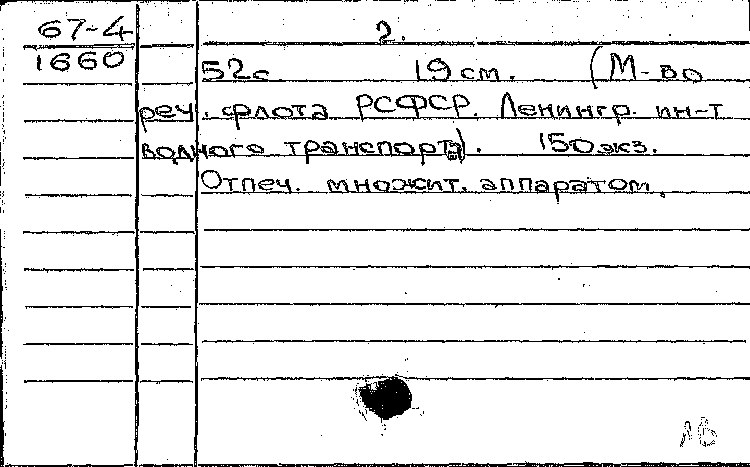 67-4 2.
1660 52с. 19 см. (М-во
реч. флота РСФСР. Ленингр. ин-т
водного транспорта). 150 экз.
Отпеч. множит. аппаратом.